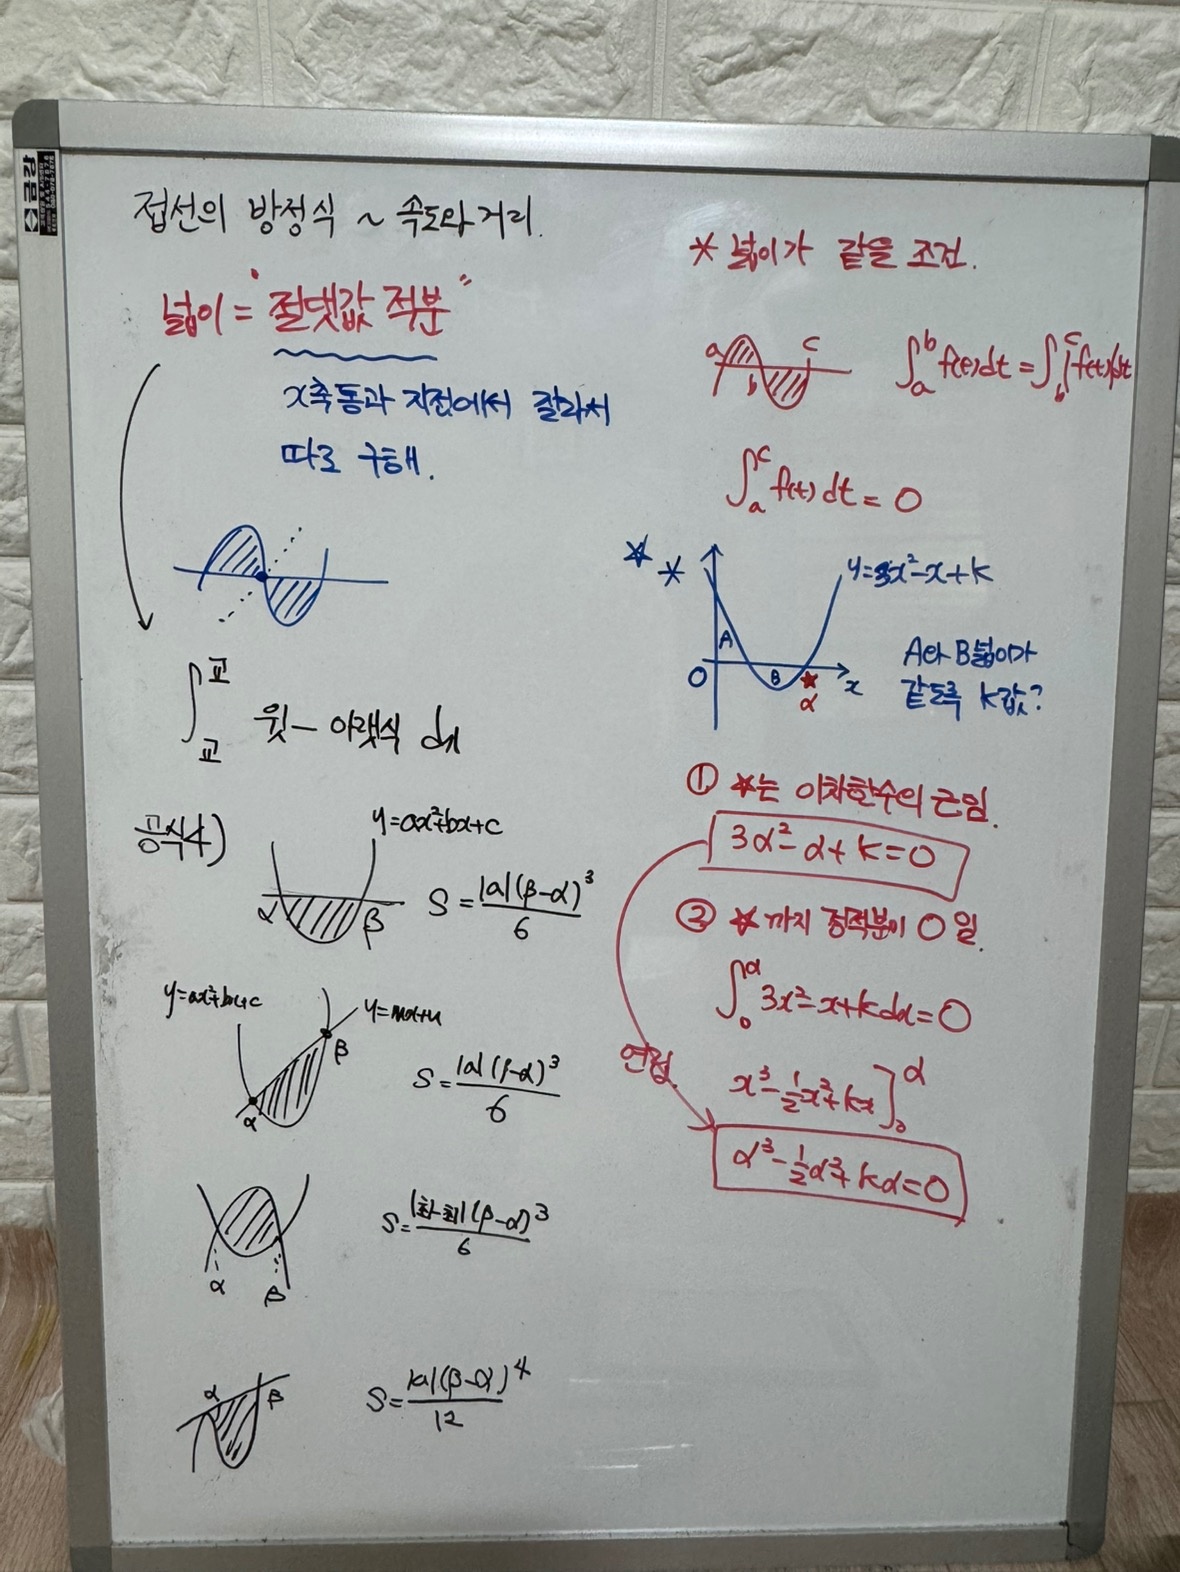 접선의 방정식 ~ 속도와 거리.
넓이 = "절댓값 적분"
x축 통과 지점에서 잘라서
따로 구해.
∫교교 윗 - 아랫식 dx
공식4)
y=ax²+bx+c
α β
S = |a|(β-α)³/6
y=ax²+bx+c
y=mx+n
α β
S = |a|(β-α)³/6
α β
S = |최-최|(β-α)³/6
α β
S = |a|(β-α)⁴/12
* 넓이가 같을 조건.
a b c
∫ₐᵇ f(t)dt = ∫ᵇᶜ|f(t)|dt
∫ₐᶜ f(t)dt = 0
☆ *
y=3x²-x+k
A B
O ★ α x
A와 B넓이가
같도록 k값?
① ★는 이차함수의 근임.
3α²-α+k=0
② ★까지 정적분이 0임.
∫₀ᵅ 3x²-x+k dx=0
연립.
x³-½x²+kx]₀ᵅ
α³-½α²+kα=0